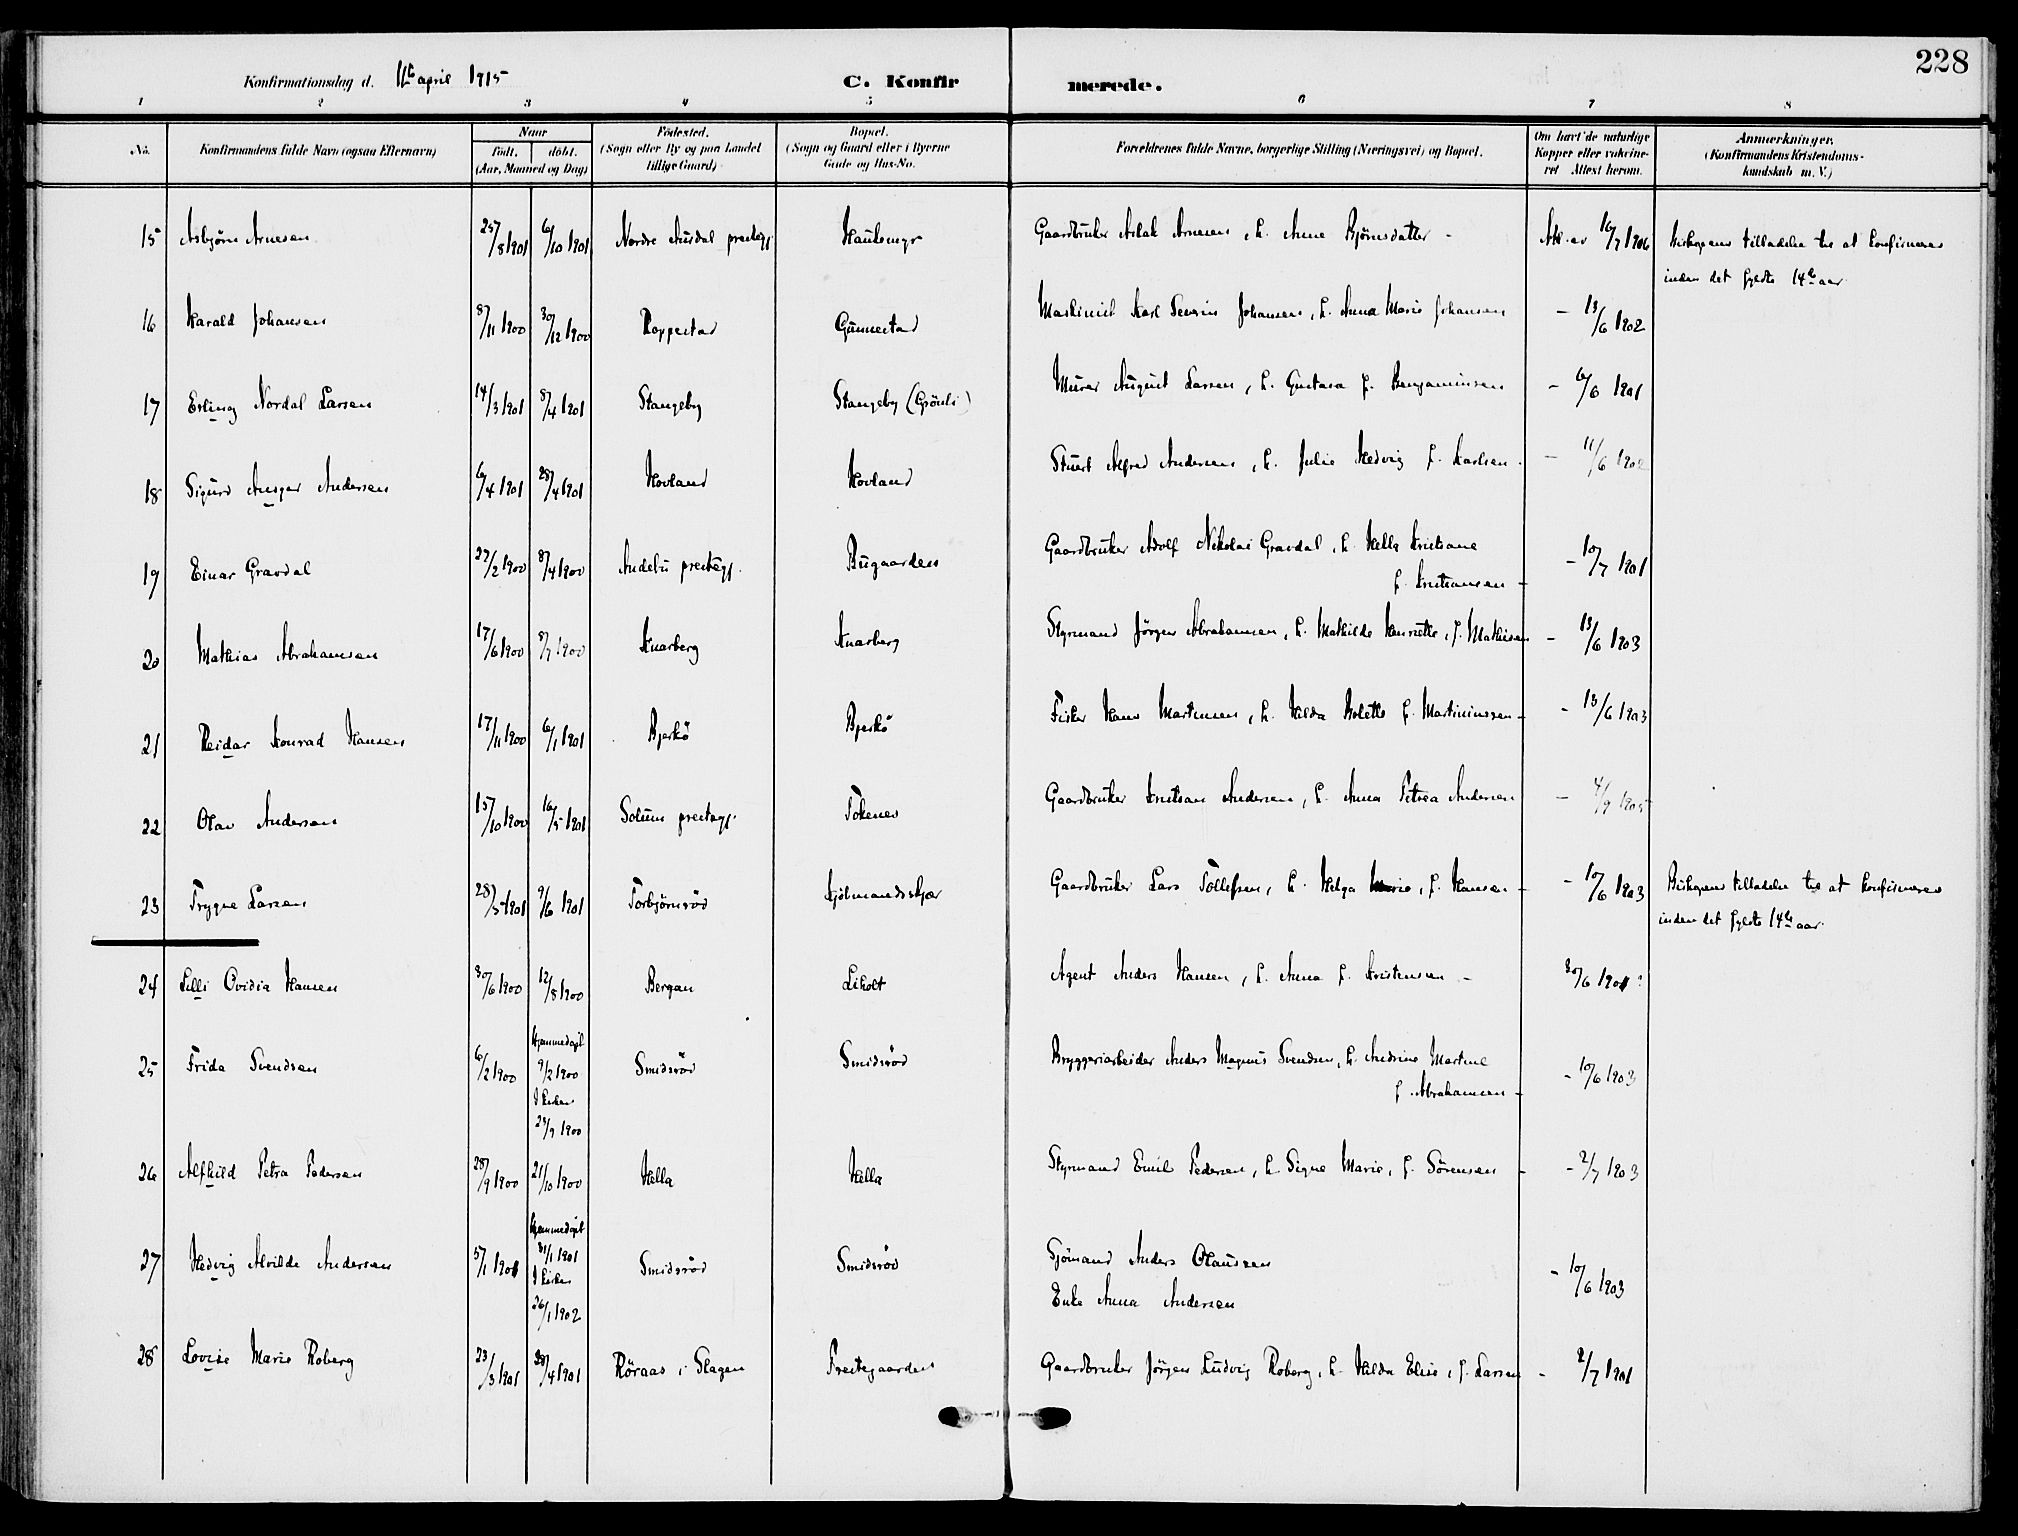 228
Konfirmationsdag d. 11te april 1915
C. Konfirmerede.
1 2 3 4 5 6 7 8
No. Konfirmandens fulde Navn (ogsaa Efternavn) Naar født, døbt. (Aar, Maaned og Dag) Fødested. (Sogn eller By og paa Landet tillige Gaard) Bopæl. (Sogn og Gaard eller i Byerne Gade og Hus-No. Forældrenes fulde Navne, borgerlige Stilling (Næringsvei) og Bopæl. Om havt de naturlige Kopper eller vakcineret Attest herom. Anmærkninger, (Konfirmandens Kristendomskundskab m. V.)
15 Asbjörn Arnesen 25/8 1901 6/10 1901 Nordre prestegj. Haukemyr Gaardbruker Aslak Arnesen, h. Anne Björnsdatter - Att. av 16/7 1906 Biskopens tilladelse til at konfirmeres
inden det fyldte 14de aar
16 Harald Johansen 8/11 1900 30/12 1900 Roppestad Gunnestad Maskinist Karl Severin Johansen, h. Anna Marie Johansen - 13/6 1902
17 Erling Nordal Larsen 14/3 1901 8/4 1901 Stangeby Stangeby (Grönli) Murer August Larsen, h. Gustava f. Benjaminsen - 6/6 1901
18 Sigurd Ansgar Andersen 6/4 1901 28/4 1901 Hovland Hovland Stuert Alfred Andersen, h. Julie Hedvig f. Karlsen - 11/6 1902
19 Einar Gravdal 27/2 1900 8/4 1900 Andebu prestegj. Bugaarden Gaardbruker Adolf Nikolai Gravdal, h. Hella Kristiane
f. Kristiansen - 10/7 1901
20 Mathias Abrahamsen 17/6 1900 8/7 1900 Knarberg Knarberg Styrmand Jörgen Abrahamsen, h. Mathilde Henriette, f. Mathisen - 13/6 1903
21 Reidar Konrad Hansen 17/11 1900 6/1 1901 Bjerkö Bjerkö Fisker Hans Martinsen, h. Hilda Bolette f. Martiniussen - 13/6 1903
22 Olav Andersen 15/10 1900 16/5 1901 Solum prestegj. Tokenes Gaardbruker Kristian Andersen, h. Anna Petrea Andersen - 4/9 1905
23 Trygve Larsen 28/5 1901 9/6 1901 Torbjörnsröd Kjölmandsskjær Gaardbruker Lars Tollefsen, h. Helga Marie, f. Hansen - 10/6 1903 Biskopens tilladelse til at konfirmeres
inden det fyldte 14de aar.
24 Lilli Ovidia Hansen 30/6 1900 12/8 1900 Bergan Liholt Agent Anders Hansen, h. Anna f. Kristensen - 30/6 1901?
25 Frida Svendsen 6/2 1900 Hjemmedöpt
9/2 1900
I kirken
23/9 1900 Smidsröd Smidsröd Bryggeriarbeider Anders Magnus Svendsen, h. Andrine Martine
f. Abrahamsen - 10/6 1903
26 Alfhild Petra Pedersen 28/9 1900 21/10 1900 Hella Hella Styrmand Emil Pedersen, h. Signe Marie, f. Sörensen - 2/7 1903
27 Hedvig Alvilde Andersen 5/1 1901 Hjemmedöpt
31/1 1901
I kirken
26/1 1902 Smidsröd Smidsröd Sjömand Anders Olaussen
Enke Anna Andersen - 10/6 1903
28 Lovise Marie Roberg 23/3 1901 28/4 1901 Röraas i Slagen Prestegaarden Gaardbruker Jörgen Ludvig Roberg, h. Hilda Elise, f. Larsen - 2/7 1901